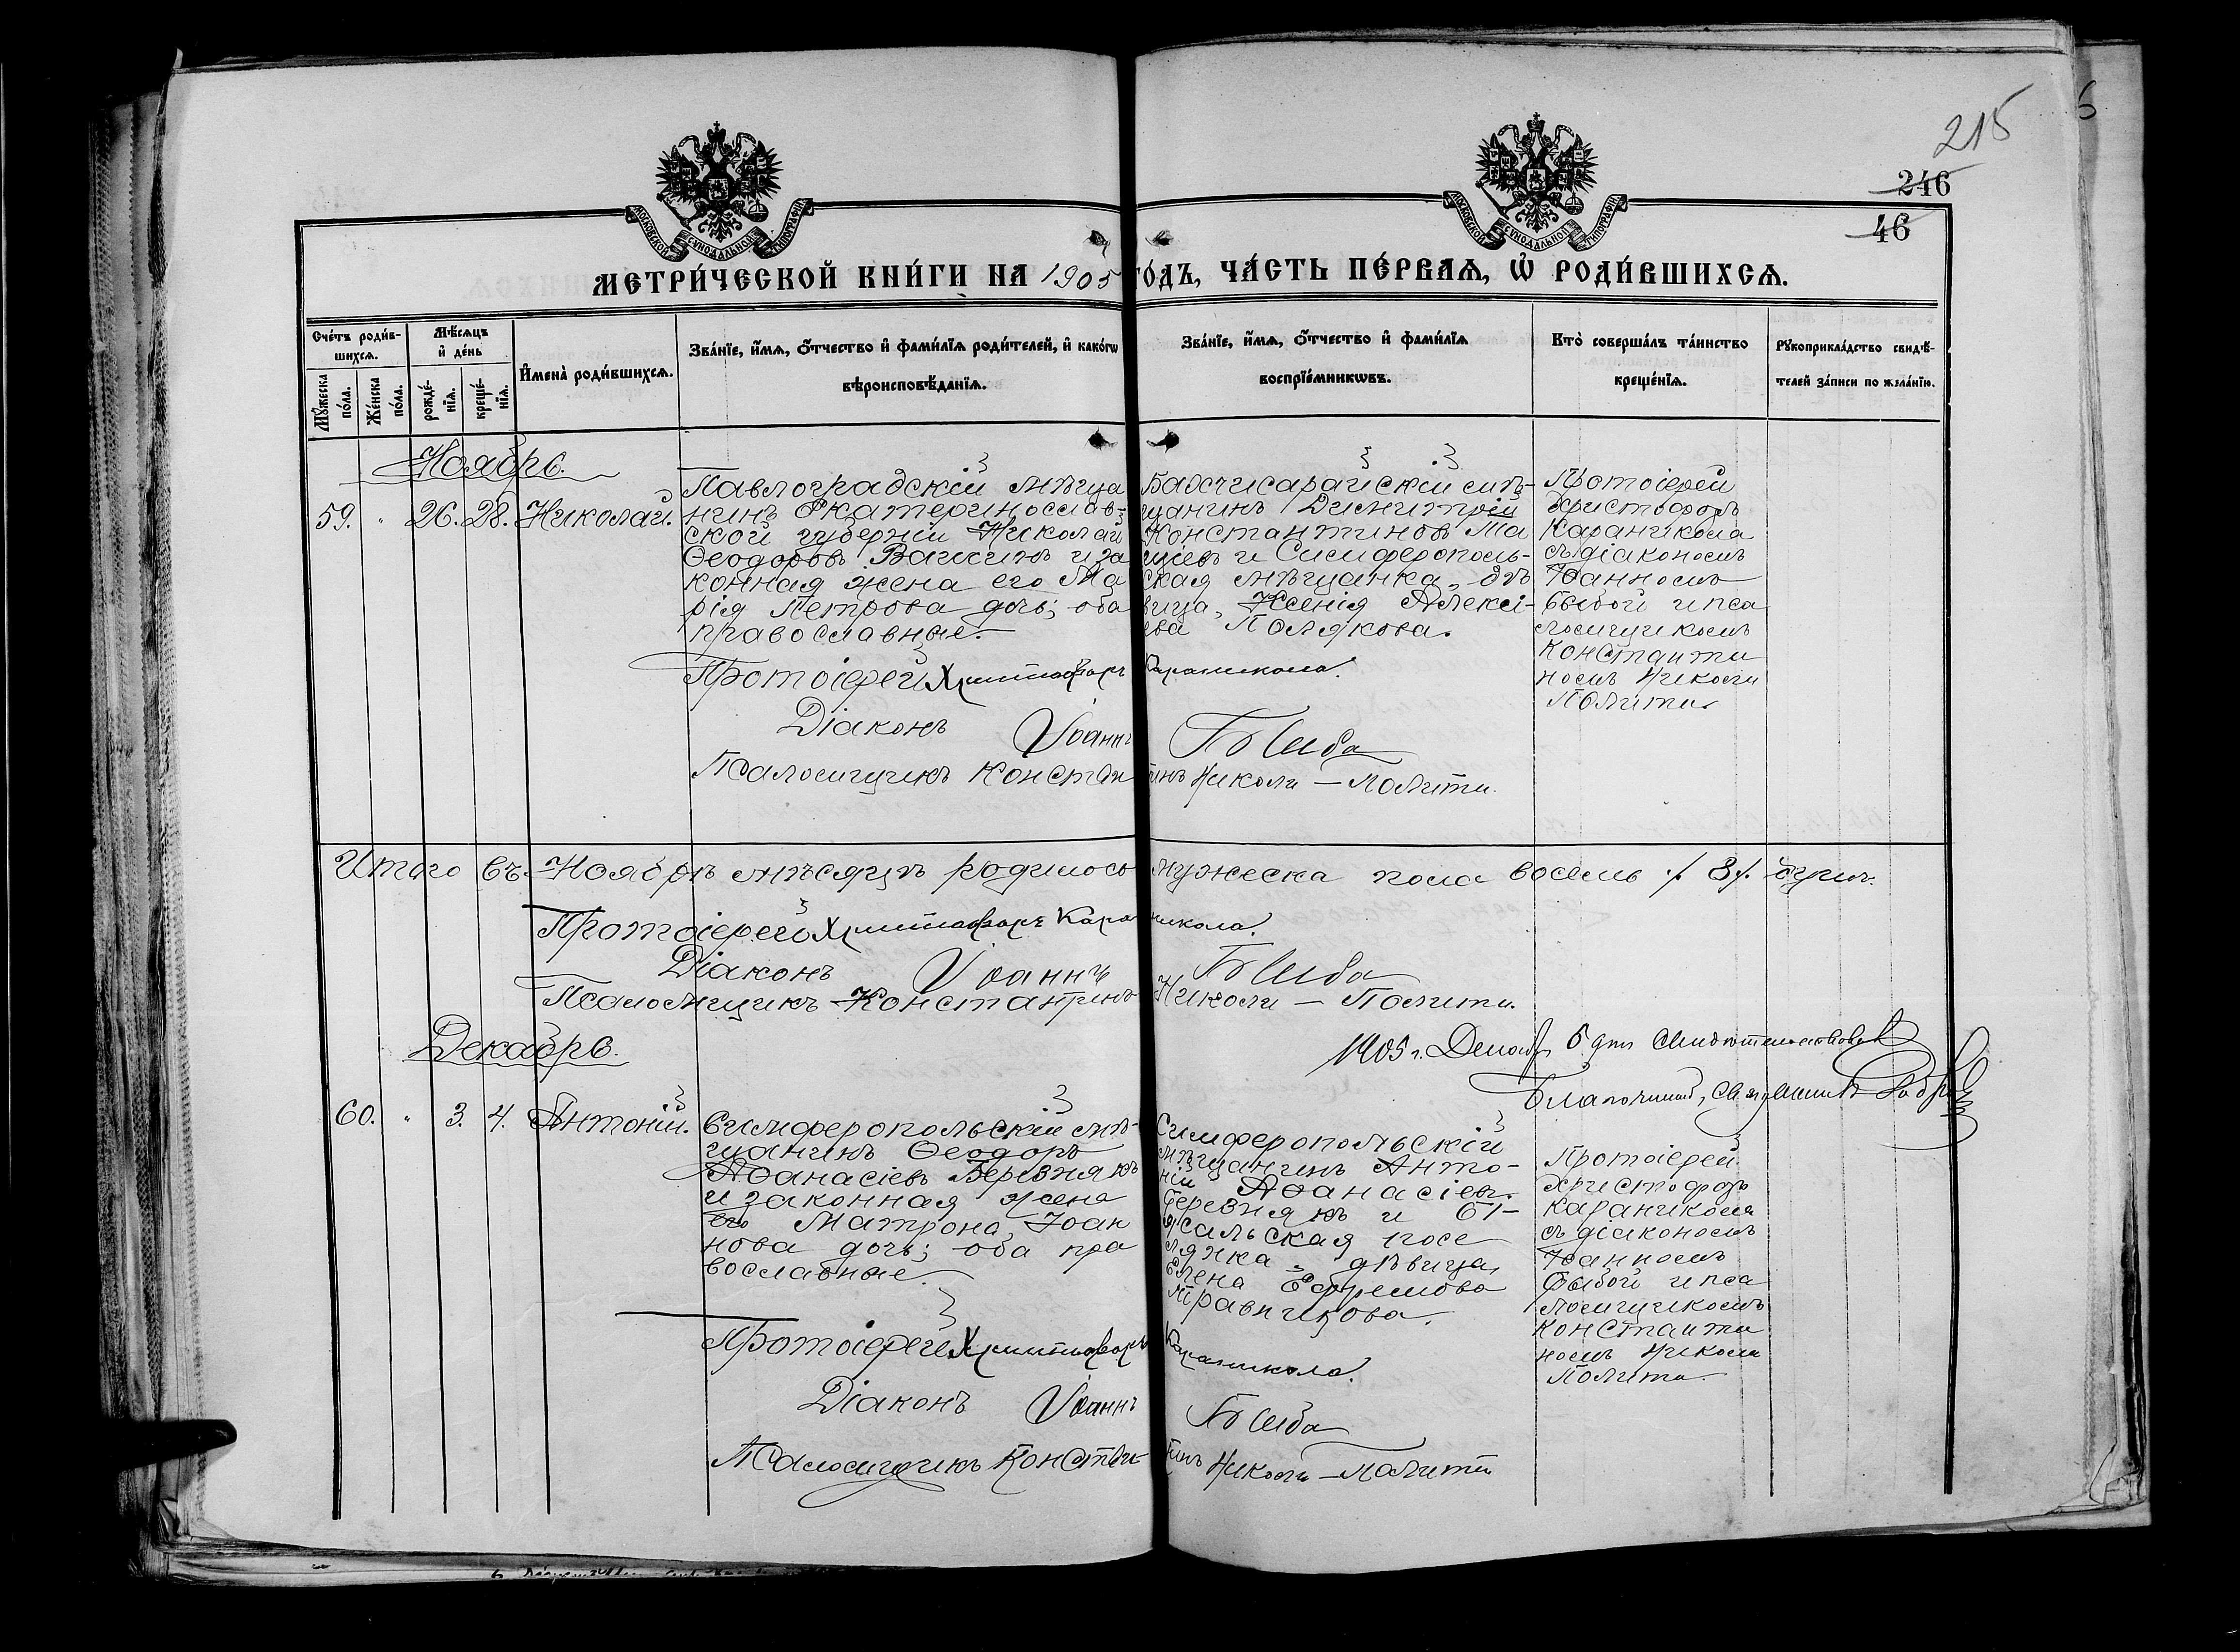 215
246
46
МОСКОВСКОЙ СѴНОДАЛЬНОЙ ТИПОГРАФІИ
МОСКОВСКОЙ СѴНОДАЛЬНОЙ ТИПОГРАФІИ
МЕТРИ́ЧЕСКОЙ КНИ́ГИ НА 1905 ГО́ДЪ, ЧА́СТЬ ПЕ́РВАѦ, Ѽ РОДИ́ВШИХСѦ.
Сче́тъ роди́в-
шихсѧ.
Мꙋ́жеска по́ла.
Же́нска по́ла.
Мѣ́сѧцъ
и҆ де́нь
рожде́-
нїѧ.
креще́-
нїѧ.
И҆мена̀ роди́вшихсѧ.
Зва́нїе, и҆́мѧ, ѻ҆́тчество и҆ фами́лїѧ роди́телей, и҆ како́гѡ
вѣроисповѣ́данїѧ.
Зва́нїе, и҆́мѧ, ѻ҆́тчество и҆ фами́лїѧ
воспрїе́мникѡвъ.
Кто̀ соверша́лъ та́инство
креще́нїѧ.
Рꙋкоприкла́дство свидѣ́-
телей за́писи по жела́нїю.
Ноябрь.
59. " 26. 28. Николай.
Павлоградскій мѣща
нинъ Екатеринослав-
ской губерніи Николай
Ѳеодоровъ Вагинъ и за
конная жена его Ма
рія Петрова дочь; оба
православные.
Бахчисарайскій мѣ-
щанинъ Димитрій
Константиновъ Ма
ціевъ и Симферополь-
ская мѣщанка, дѣ
вица, Ксенія Алексі-
ева Полякова.
Протоіерей
Христофоръ
Караникола
съ діакономъ
Іоанномъ
Бывой и пса
ломщикомъ
Константи
номъ Николи
Полити.
Протоіерей Христофоръ Караникола.
Діаконъ Іоаннъ
Псаломщикъ Константинъ Николи — Полити.
Итого въ Ноябрѣ мѣсяцѣ родилось мужеска пола восемь /8/. душъ.
Протоіерей Христофоръ Караникола.
Діаконъ Іоаннъ
Псаломщикъ Константинъ Николи — Полити.
Декабрь.
1905 г. Декабр. 5 дня Свидѣтельствовалъ
Благочинный, Священникъ
60. " 3. 4. Антоній.
Симферопольскій мѣ-
щанинъ Ѳеодоръ
Аѳанасіевъ Березнякъ
и законная жена
его Матрона Іоан
нова дочь; оба пра
вославные.
Симферопольскій
мѣщанинъ Анто-
ній Аѳанасіевъ
Березнякъ и
сальская посе
лянка дѣвица,
Елена Ефремова
Травникова.
Протоіерей
Христофоръ
Караникола
съ діакономъ
Іоанномъ
Бывой и пса
ломщикомъ
Константи
номъ Николи
Полити.
Протоіерей Христофоръ Караникола.
Діаконъ Іоаннъ
Псаломщикъ Константинъ Николи — Полити